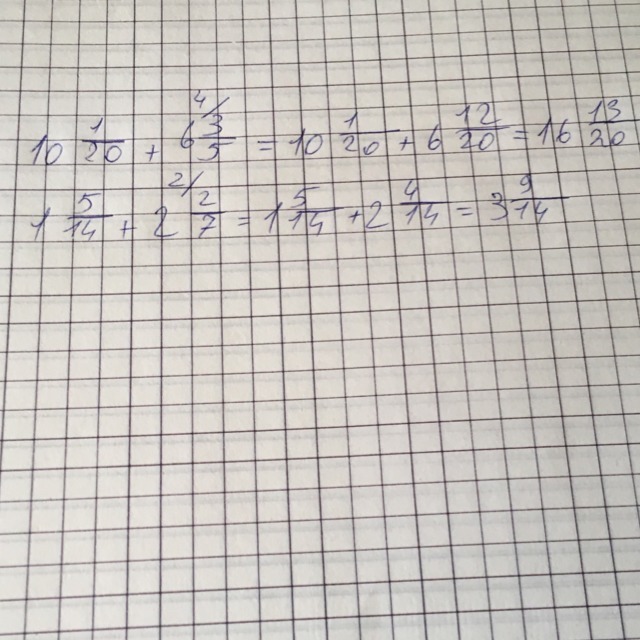 10 1/20 + 4/ 6 3/5 = 10 1/20 + 6 12/20 = 16 13/20
1 5/14 + 2 2/ 2/7 = 1 5/14 + 2 4/14 = 3 9/14